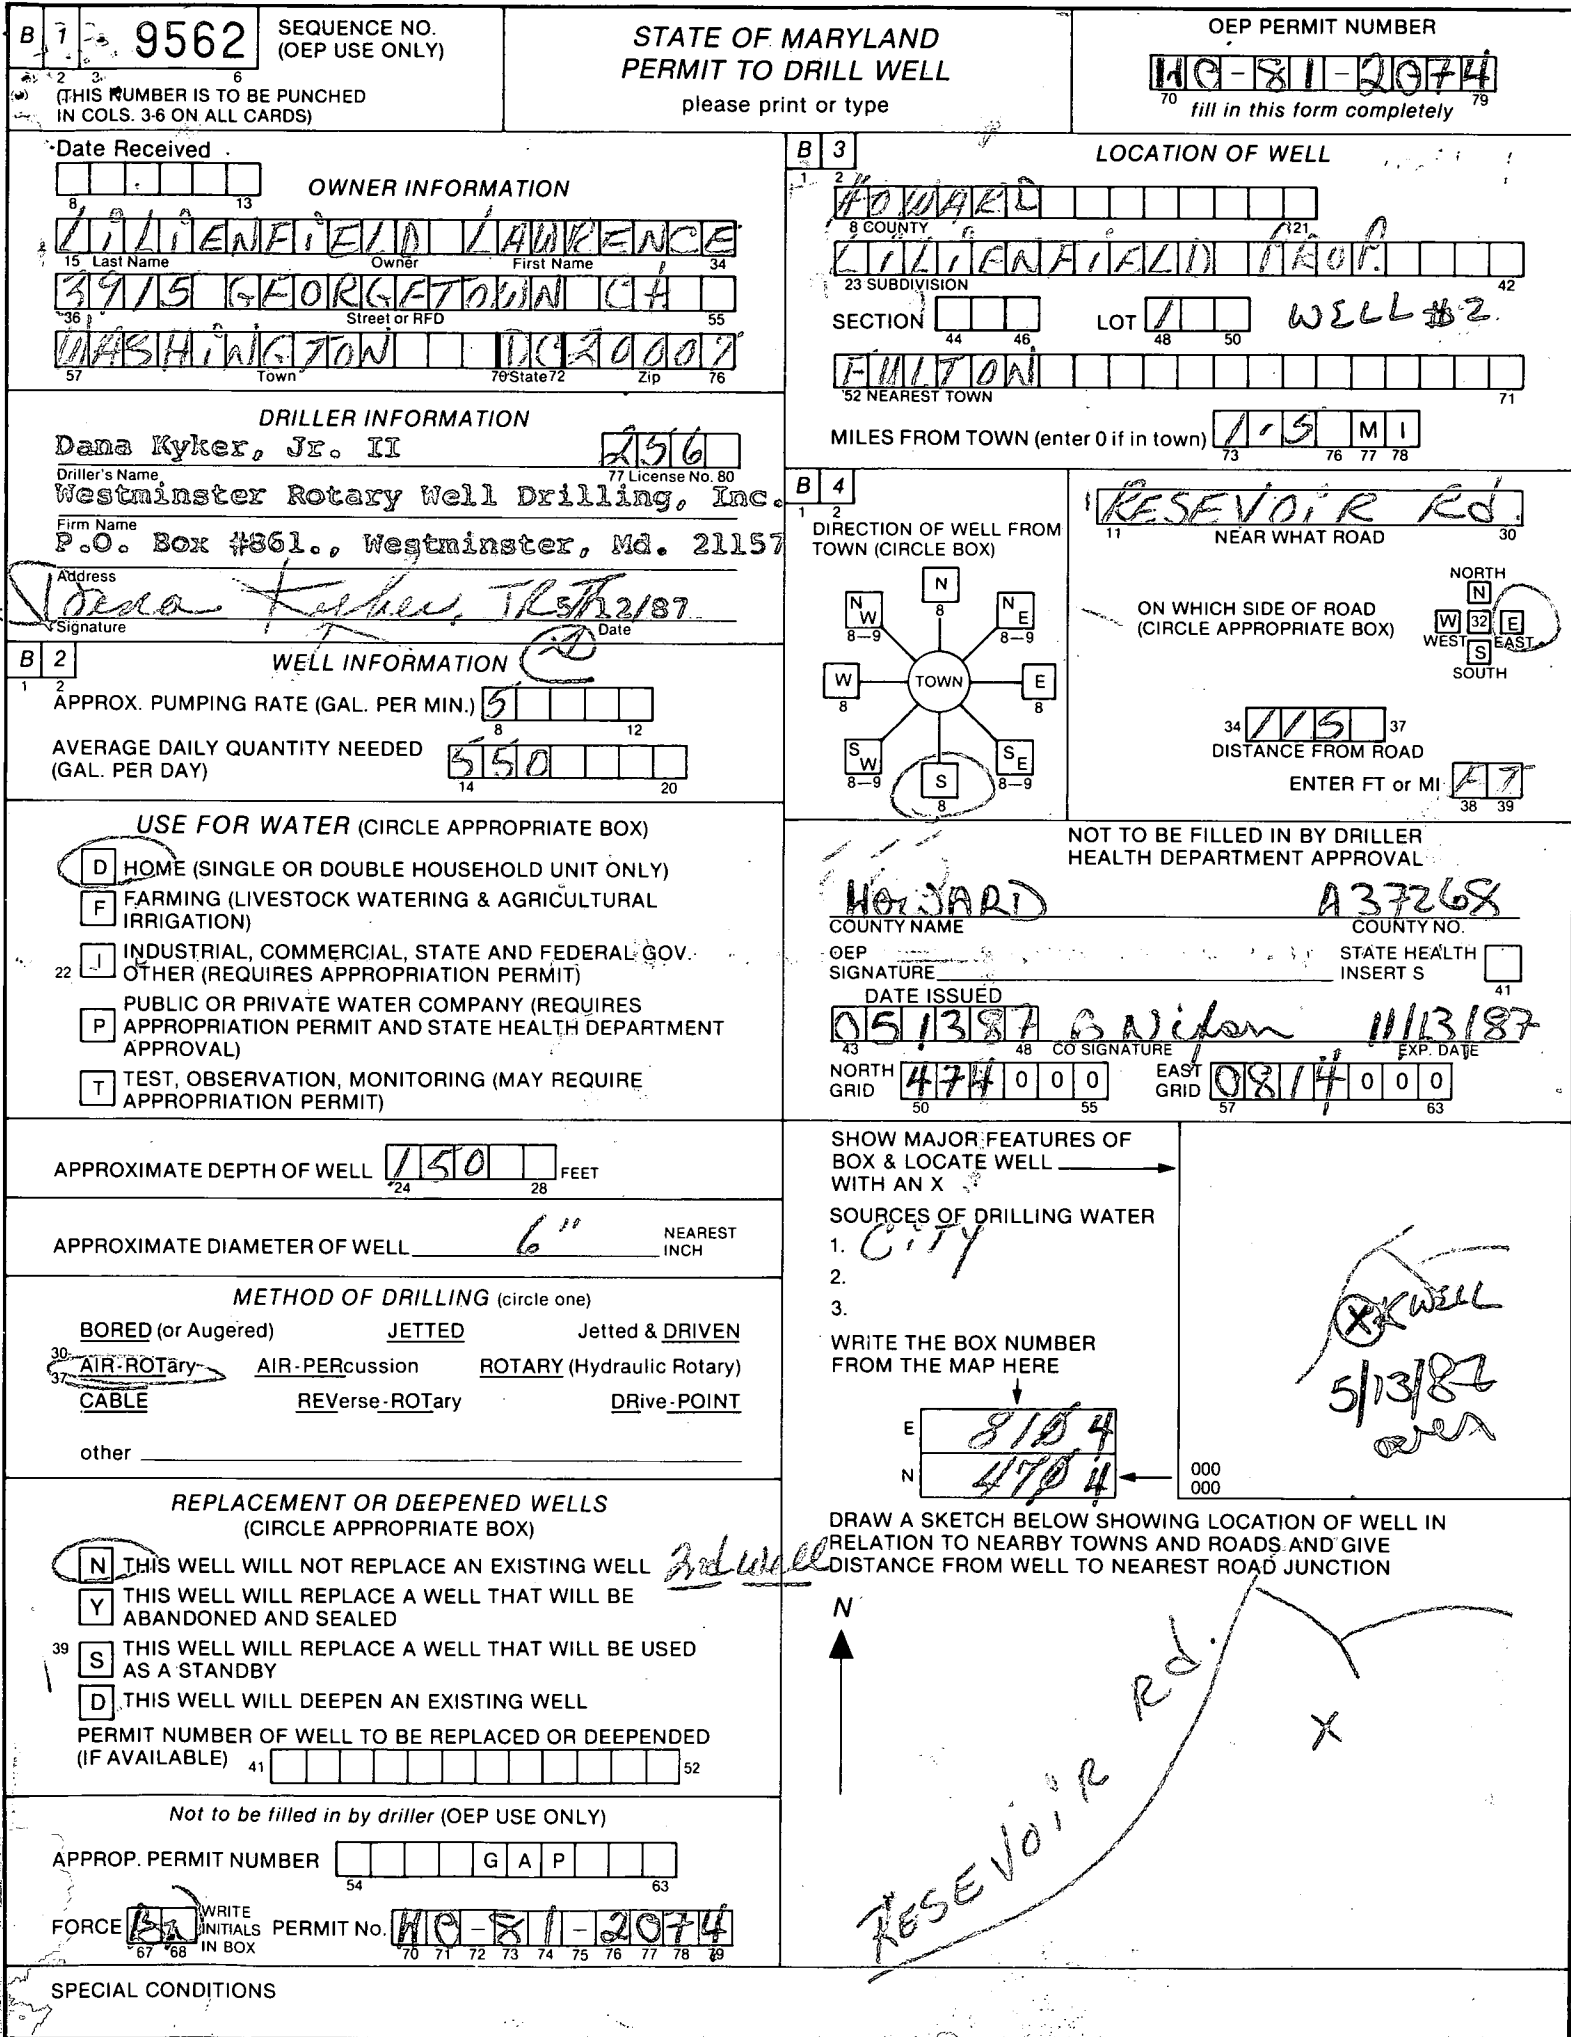 B 1 9562 SEQUENCE NO. (OEP USE ONLY)
1 2 3 6
(THIS NUMBER IS TO BE PUNCHED
IN COLS. 3-6 ON ALL CARDS)
STATE OF MARYLAND
PERMIT TO DRILL WELL
please print or type
OEP PERMIT NUMBER
HO-81-2074
70 79
fill in this form completely
Date Received
8 13
OWNER INFORMATION
LILIENFIELD LAWRENCE
15 Last Name Owner First Name 34
3915 GEORGETOWN Ct
36 Street or RFD 55
WASHINGTON DC 20007
57 Town 70 State 72 Zip 76
DRILLER INFORMATION
Dana Kyker, Jr. II 256
Driller's Name 77 License No. 80
Westminster Rotary Well Drilling, Inc.
Firm Name
P.O. Box #861., Westminster, Md. 21157
Address
Dana Kyker, JR II 5/12/87
Signature Date
B 2 WELL INFORMATION
1 2
APPROX. PUMPING RATE (GAL. PER MIN.) 5
8 12
AVERAGE DAILY QUANTITY NEEDED
(GAL. PER DAY) 550
14 20
USE FOR WATER (CIRCLE APPROPRIATE BOX)
D HOME (SINGLE OR DOUBLE HOUSEHOLD UNIT ONLY)
F FARMING (LIVESTOCK WATERING & AGRICULTURAL
IRRIGATION)
22 I INDUSTRIAL, COMMERCIAL, STATE AND FEDERAL GOV.
OTHER (REQUIRES APPROPRIATION PERMIT)
P PUBLIC OR PRIVATE WATER COMPANY (REQUIRES
APPROPRIATION PERMIT AND STATE HEALTH DEPARTMENT
APPROVAL)
T TEST, OBSERVATION, MONITORING (MAY REQUIRE
APPROPRIATION PERMIT)
APPROXIMATE DEPTH OF WELL 150 FEET
24 28
APPROXIMATE DIAMETER OF WELL 6" NEAREST INCH
METHOD OF DRILLING (circle one)
BORED (or Augered) JETTED Jetted & DRIVEN
30 AIR-ROTary AIR-PERcussion ROTARY (Hydraulic Rotary)
37 CABLE REVerse-ROTary DRive-POINT
other
REPLACEMENT OR DEEPENED WELLS
(CIRCLE APPROPRIATE BOX)
N THIS WELL WILL NOT REPLACE AN EXISTING WELL 2nd Well
Y THIS WELL WILL REPLACE A WELL THAT WILL BE
ABANDONED AND SEALED
39 S THIS WELL WILL REPLACE A WELL THAT WILL BE USED
AS A STANDBY
D THIS WELL WILL DEEPEN AN EXISTING WELL
PERMIT NUMBER OF WELL TO BE REPLACED OR DEEPENDED
(IF AVAILABLE) 41 52
Not to be filled in by driller (OEP USE ONLY)
APPROP. PERMIT NUMBER G A P
54 63
FORCE WRITE INITIALS IN BOX PERMIT No. HO-81-2074
67 68 70 71 72 73 74 75 76 77 78 79
SPECIAL CONDITIONS
B 3 LOCATION OF WELL
1 2
HOWARD
8 COUNTY 21
LILIENFIELD PROP.
23 SUBDIVISION 42
SECTION LOT 1 WELL #2
44 46 48 50
FULTON
52 NEAREST TOWN 71
MILES FROM TOWN (enter 0 if in town) 1.5 M I
73 76 77 78
B 4
1 2
DIRECTION OF WELL FROM
TOWN (CIRCLE BOX)
N 8
NW 8-9 NE 8-9
W 8 TOWN E 8
SW 8-9 S 8 SE 8-9
RESEVOIR Rd.
11 NEAR WHAT ROAD 30
ON WHICH SIDE OF ROAD
(CIRCLE APPROPRIATE BOX)
NORTH
N
W 32 E
WEST EAST
S
SOUTH
34 115 37
DISTANCE FROM ROAD
ENTER FT or MI FT
38 39
NOT TO BE FILLED IN BY DRILLER
HEALTH DEPARTMENT APPROVAL
HOWARD A37268
COUNTY NAME COUNTY NO.
OEP
SIGNATURE STATE HEALTH INSERT S
41
DATE ISSUED
051387 B Nixon 11/13/87
43 48 CO SIGNATURE EXP. DATE
NORTH GRID 474 0 0 0 EAST GRID 0814 0 0 0
50 55 57 63
SHOW MAJOR FEATURES OF
BOX & LOCATE WELL
WITH AN X
SOURCES OF DRILLING WATER
1. CITY
2.
3.
WRITE THE BOX NUMBER
FROM THE MAP HERE
E 8104
N 4704
X WELL
5/13/87
000
000
DRAW A SKETCH BELOW SHOWING LOCATION OF WELL IN
RELATION TO NEARBY TOWNS AND ROADS AND GIVE
DISTANCE FROM WELL TO NEAREST ROAD JUNCTION
N
RESEVOIR Rd.
X